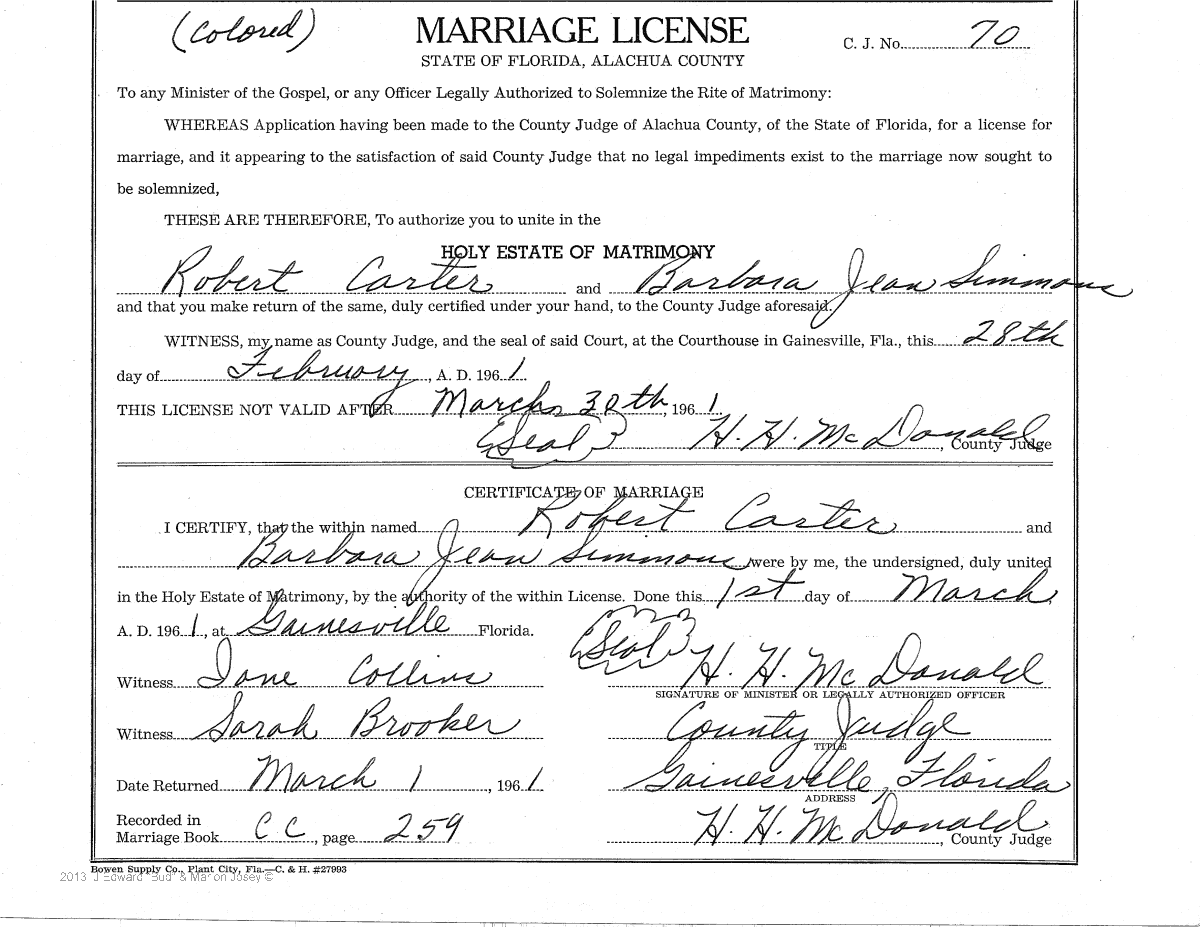 (Colored) MARRIAGE LICENSE C. J. No. 70
STATE OF FLORIDA, ALACHUA COUNTY
To any Minister of the Gospel, or any Officer Legally Authorized to Solemnize the Rite of Matrimony:
WHEREAS Application having been made to the County Judge of Alachua County, of the State of Florida, for a license for
marriage, and it appearing to the satisfaction of said County Judge that no legal impediments exist to the marriage now sought to
be solemnized,
THESE ARE THEREFORE, To authorize you to unite in the
HOLY ESTATE OF MATRIMONY
Robert Carter and Barbara Jean Simmons
and that you make return of the same, duly certified under your hand, to the County Judge aforesaid.
WITNESS, my name as County Judge, and the seal of said Court, at the Courthouse in Gainesville, Fla., this 28th
day of February, A. D. 1961
THIS LICENSE NOT VALID AFTER March 30th, 1961
(Seal) H. H. McDonald, County Judge
CERTIFICATE OF MARRIAGE
I CERTIFY, that the within named Robert Carter and
Barbara Jean Simmons were by me, the undersigned, duly united
in the Holy Estate of Matrimony, by the authority of the within License. Done this 1st day of March,
A. D. 1961, at Gainesville Florida. (Seal)
Witness Ione Collins H. H. McDonald
SIGNATURE OF MINISTER OR LEGALLY AUTHORIZED OFFICER
Witness Sarah Brooker County Judge
TITLE
Date Returned March 1, 1961 Gainesville, Florida
ADDRESS
Recorded in
Marriage Book CC, page 259 H. H. McDonald, County Judge
Bowen Supply Co., Plant City, Fla.—C. & H. #27993
2013 J Edward "Bud" & Marion Josey ©